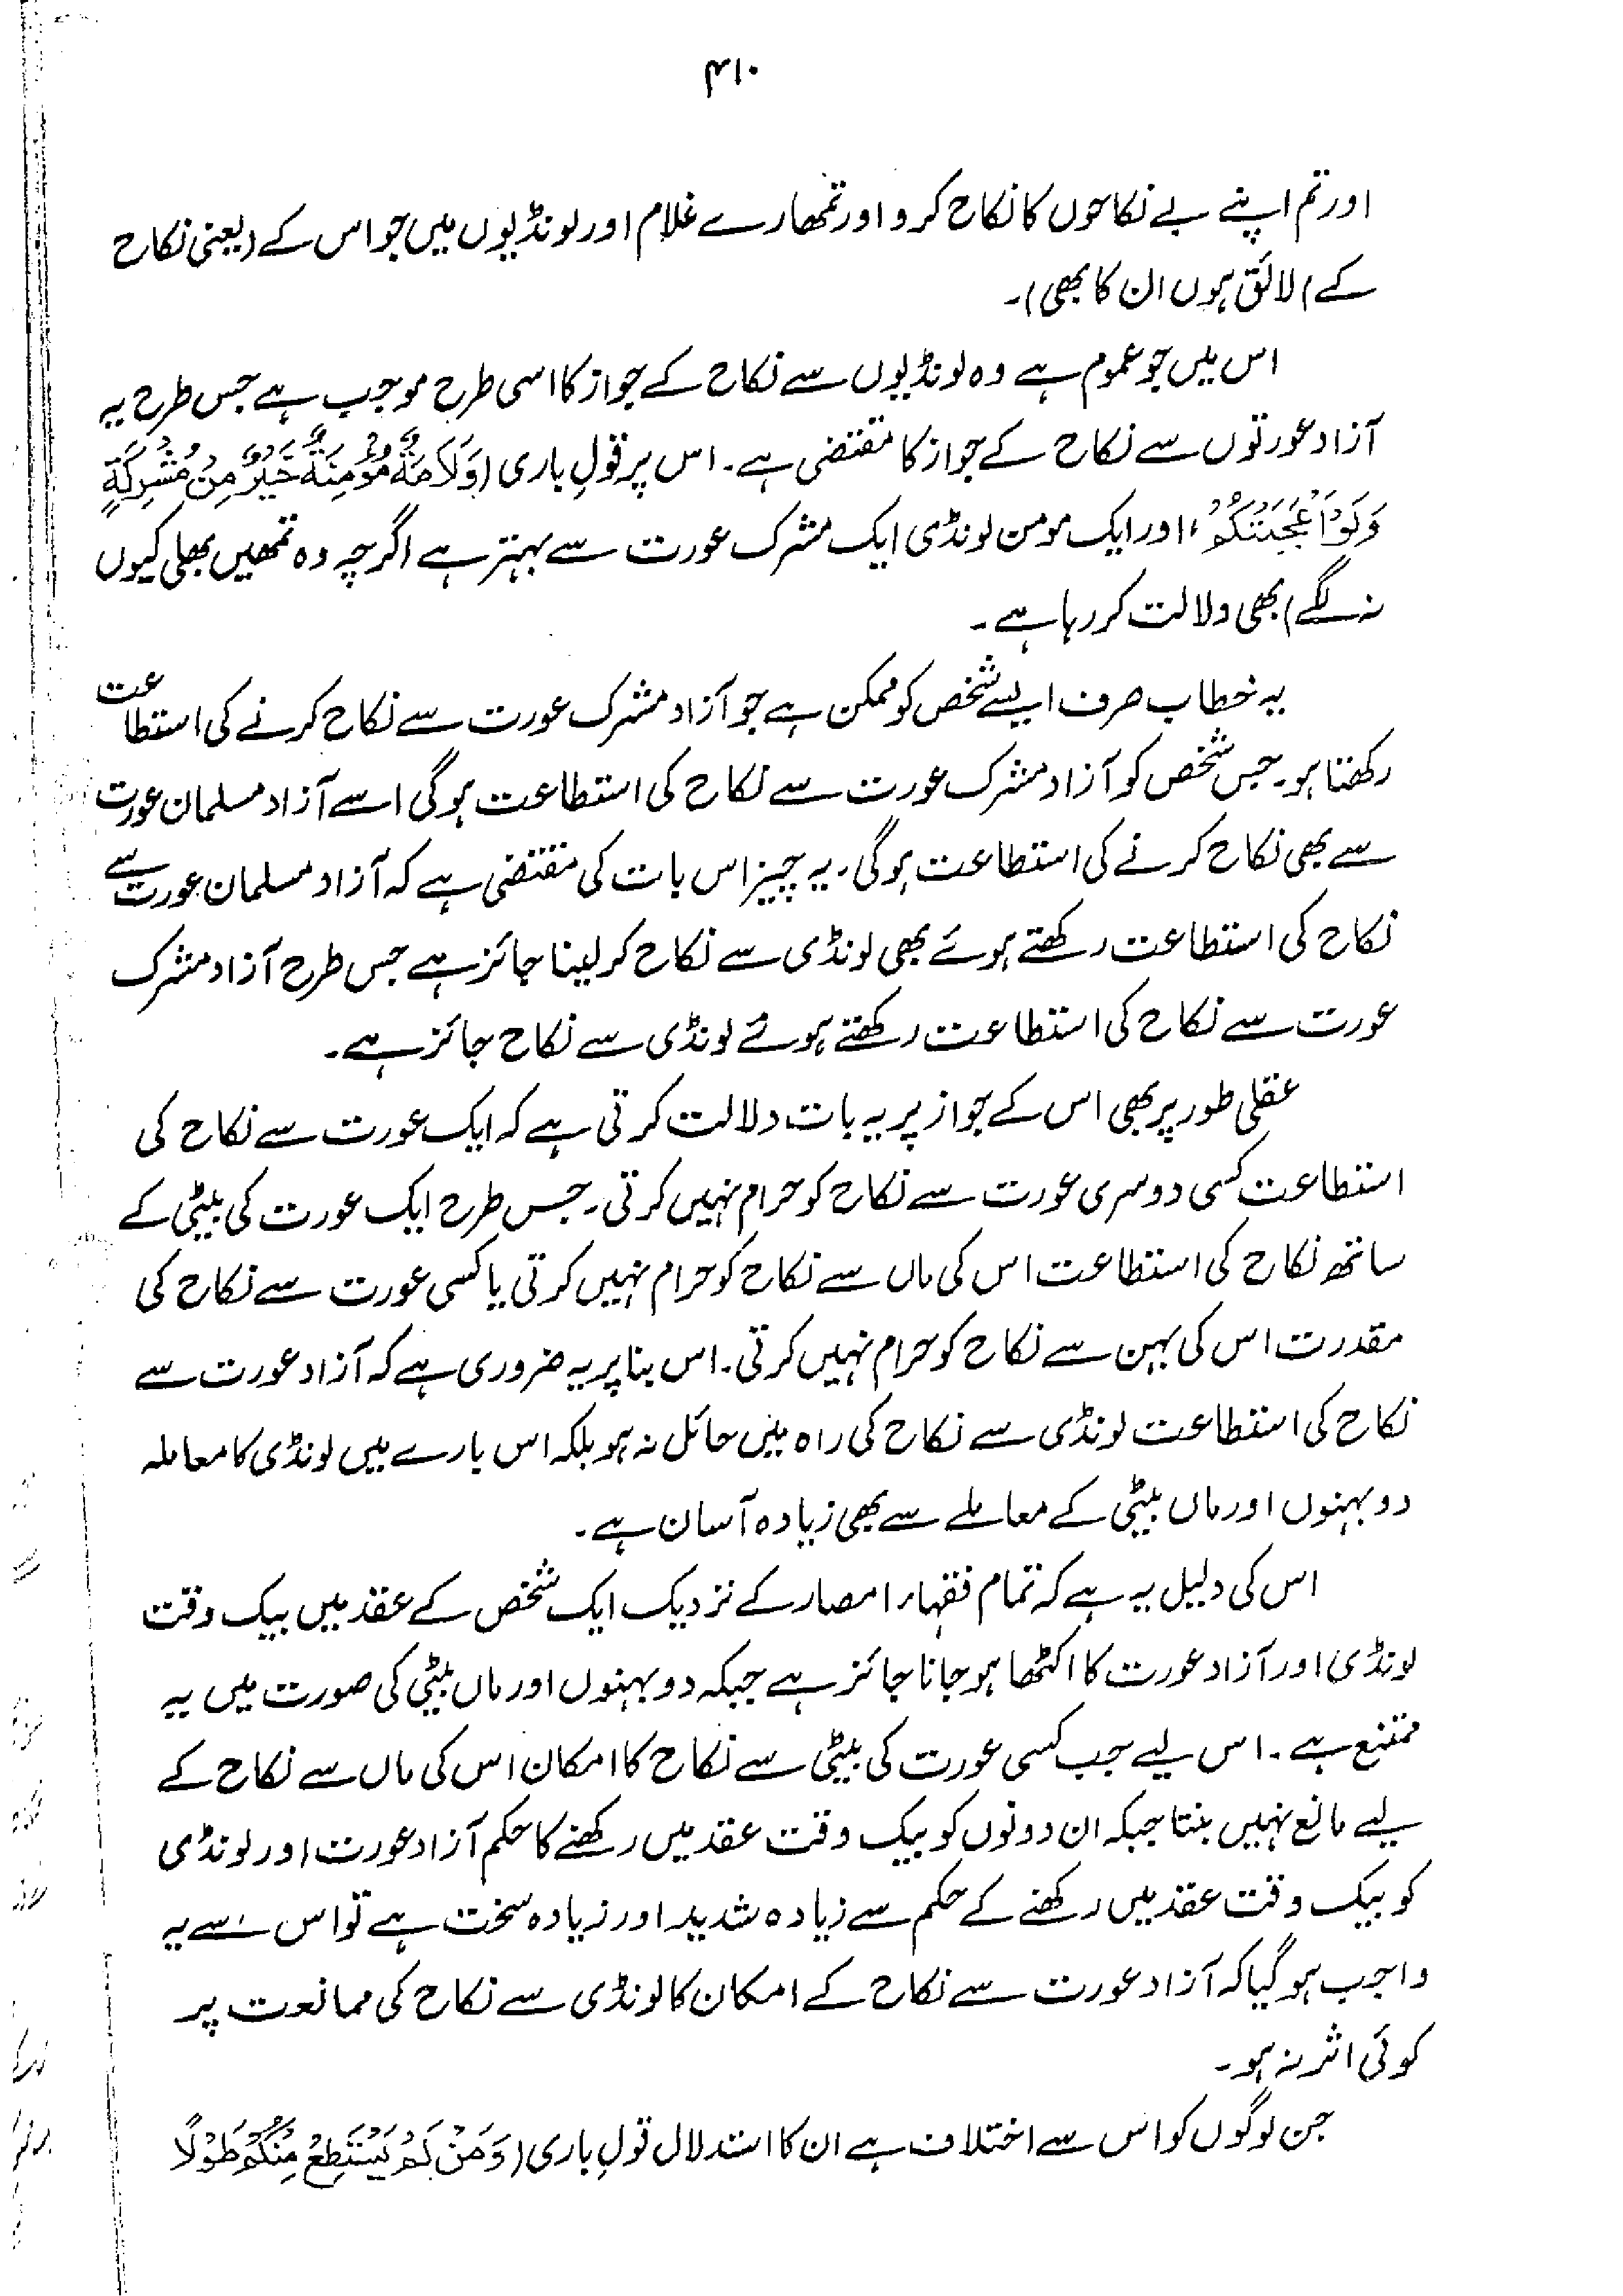 ۴۱۰
اور تم اپنے بے نکاحوں کا نکاح کرو اور تمھارے غلام اور لونڈیوں میں جو اس کے (یعنی نکاح
کے) لائق ہوں ان کا بھی)۔
اس میں جو عموم ہے وہ لونڈیوں سے نکاح کے جواز کا اسی طرح موجب ہے جس طرح یہ
آزاد عورتوں سے نکاح کے جواز کا مقتضی ہے۔ اس پر قولِ باری (وَلَاَمَةٌ مُّؤْمِنَةٌ خَيْرٌ مِّنْ مُّشْرِكَةٍ
وَلَوْ اَعْجَبَتْكُمْ، اور ایک مومن لونڈی ایک مشرک عورت سے بہتر ہے اگرچہ وہ تمھیں بھلی کیوں
نہ لگے) بھی دلالت کر رہا ہے۔
یہ خطاب صرف ایسے شخص کو ممکن ہے جو آزاد مشرک عورت سے نکاح کرنے کی استطاعت
رکھتا ہو۔ جس شخص کو آزاد مشرک عورت سے نکاح کی استطاعت ہوگی اسے آزاد مسلمان عورت
سے بھی نکاح کرنے کی استطاعت ہوگی۔ یہ چیز اس بات کی مقتضی ہے کہ آزاد مسلمان عورت سے
نکاح کی استطاعت رکھتے ہوئے بھی لونڈی سے نکاح کر لینا جائز ہے جس طرح آزاد مشرک
عورت سے نکاح کی استطاعت رکھتے ہوئے لونڈی سے نکاح جائز ہے۔
عقلی طور پر بھی اس کے جواز پر یہ بات دلالت کرتی ہے کہ ایک عورت سے نکاح کی
استطاعت کسی دوسری عورت سے نکاح کو حرام نہیں کرتی۔ جس طرح ایک عورت کی بیٹی کے
ساتھ نکاح کی استطاعت اس کی ماں سے نکاح کو حرام نہیں کرتی یا کسی عورت سے نکاح کی
مقدرت اس کی بہن سے نکاح کو حرام نہیں کرتی۔ اس بنا پر یہ ضروری ہے کہ آزاد عورت سے
نکاح کی استطاعت لونڈی سے نکاح کی راہ میں حائل نہ ہو بلکہ اس بارے میں لونڈی کا معاملہ
دو بہنوں اور ماں بیٹی کے معاملے سے بھی زیادہ آسان ہے۔
اس کی دلیل یہ ہے کہ تمام فقہاء امصار کے نزدیک ایک شخص کے عقد میں بیک وقت
لونڈی اور آزاد عورت کا اکٹھا ہو جانا جائز ہے جبکہ دو بہنوں اور ماں بیٹی کی صورت میں یہ
ممتنع ہے۔ اس لیے جب کسی عورت کی بیٹی سے نکاح کا امکان اس کی ماں سے نکاح کے
لیے مانع نہیں بنتا جبکہ ان دونوں کو بیک وقت عقد میں رکھنے کا حکم آزاد عورت اور لونڈی
کو بیک وقت عقد میں رکھنے کے حکم سے زیادہ شدید اور زیادہ سخت ہے تو اس سے یہ
واجب ہو گیا کہ آزاد عورت سے نکاح کے امکان کا لونڈی سے نکاح کی ممانعت پر
کوئی اثر نہ ہو۔
جن لوگوں کو اس سے اختلاف ہے ان کا استدلال قولِ باری (وَمَنْ لَّمْ يَسْتَطِعْ مِنْكُمْ طَوْلًا